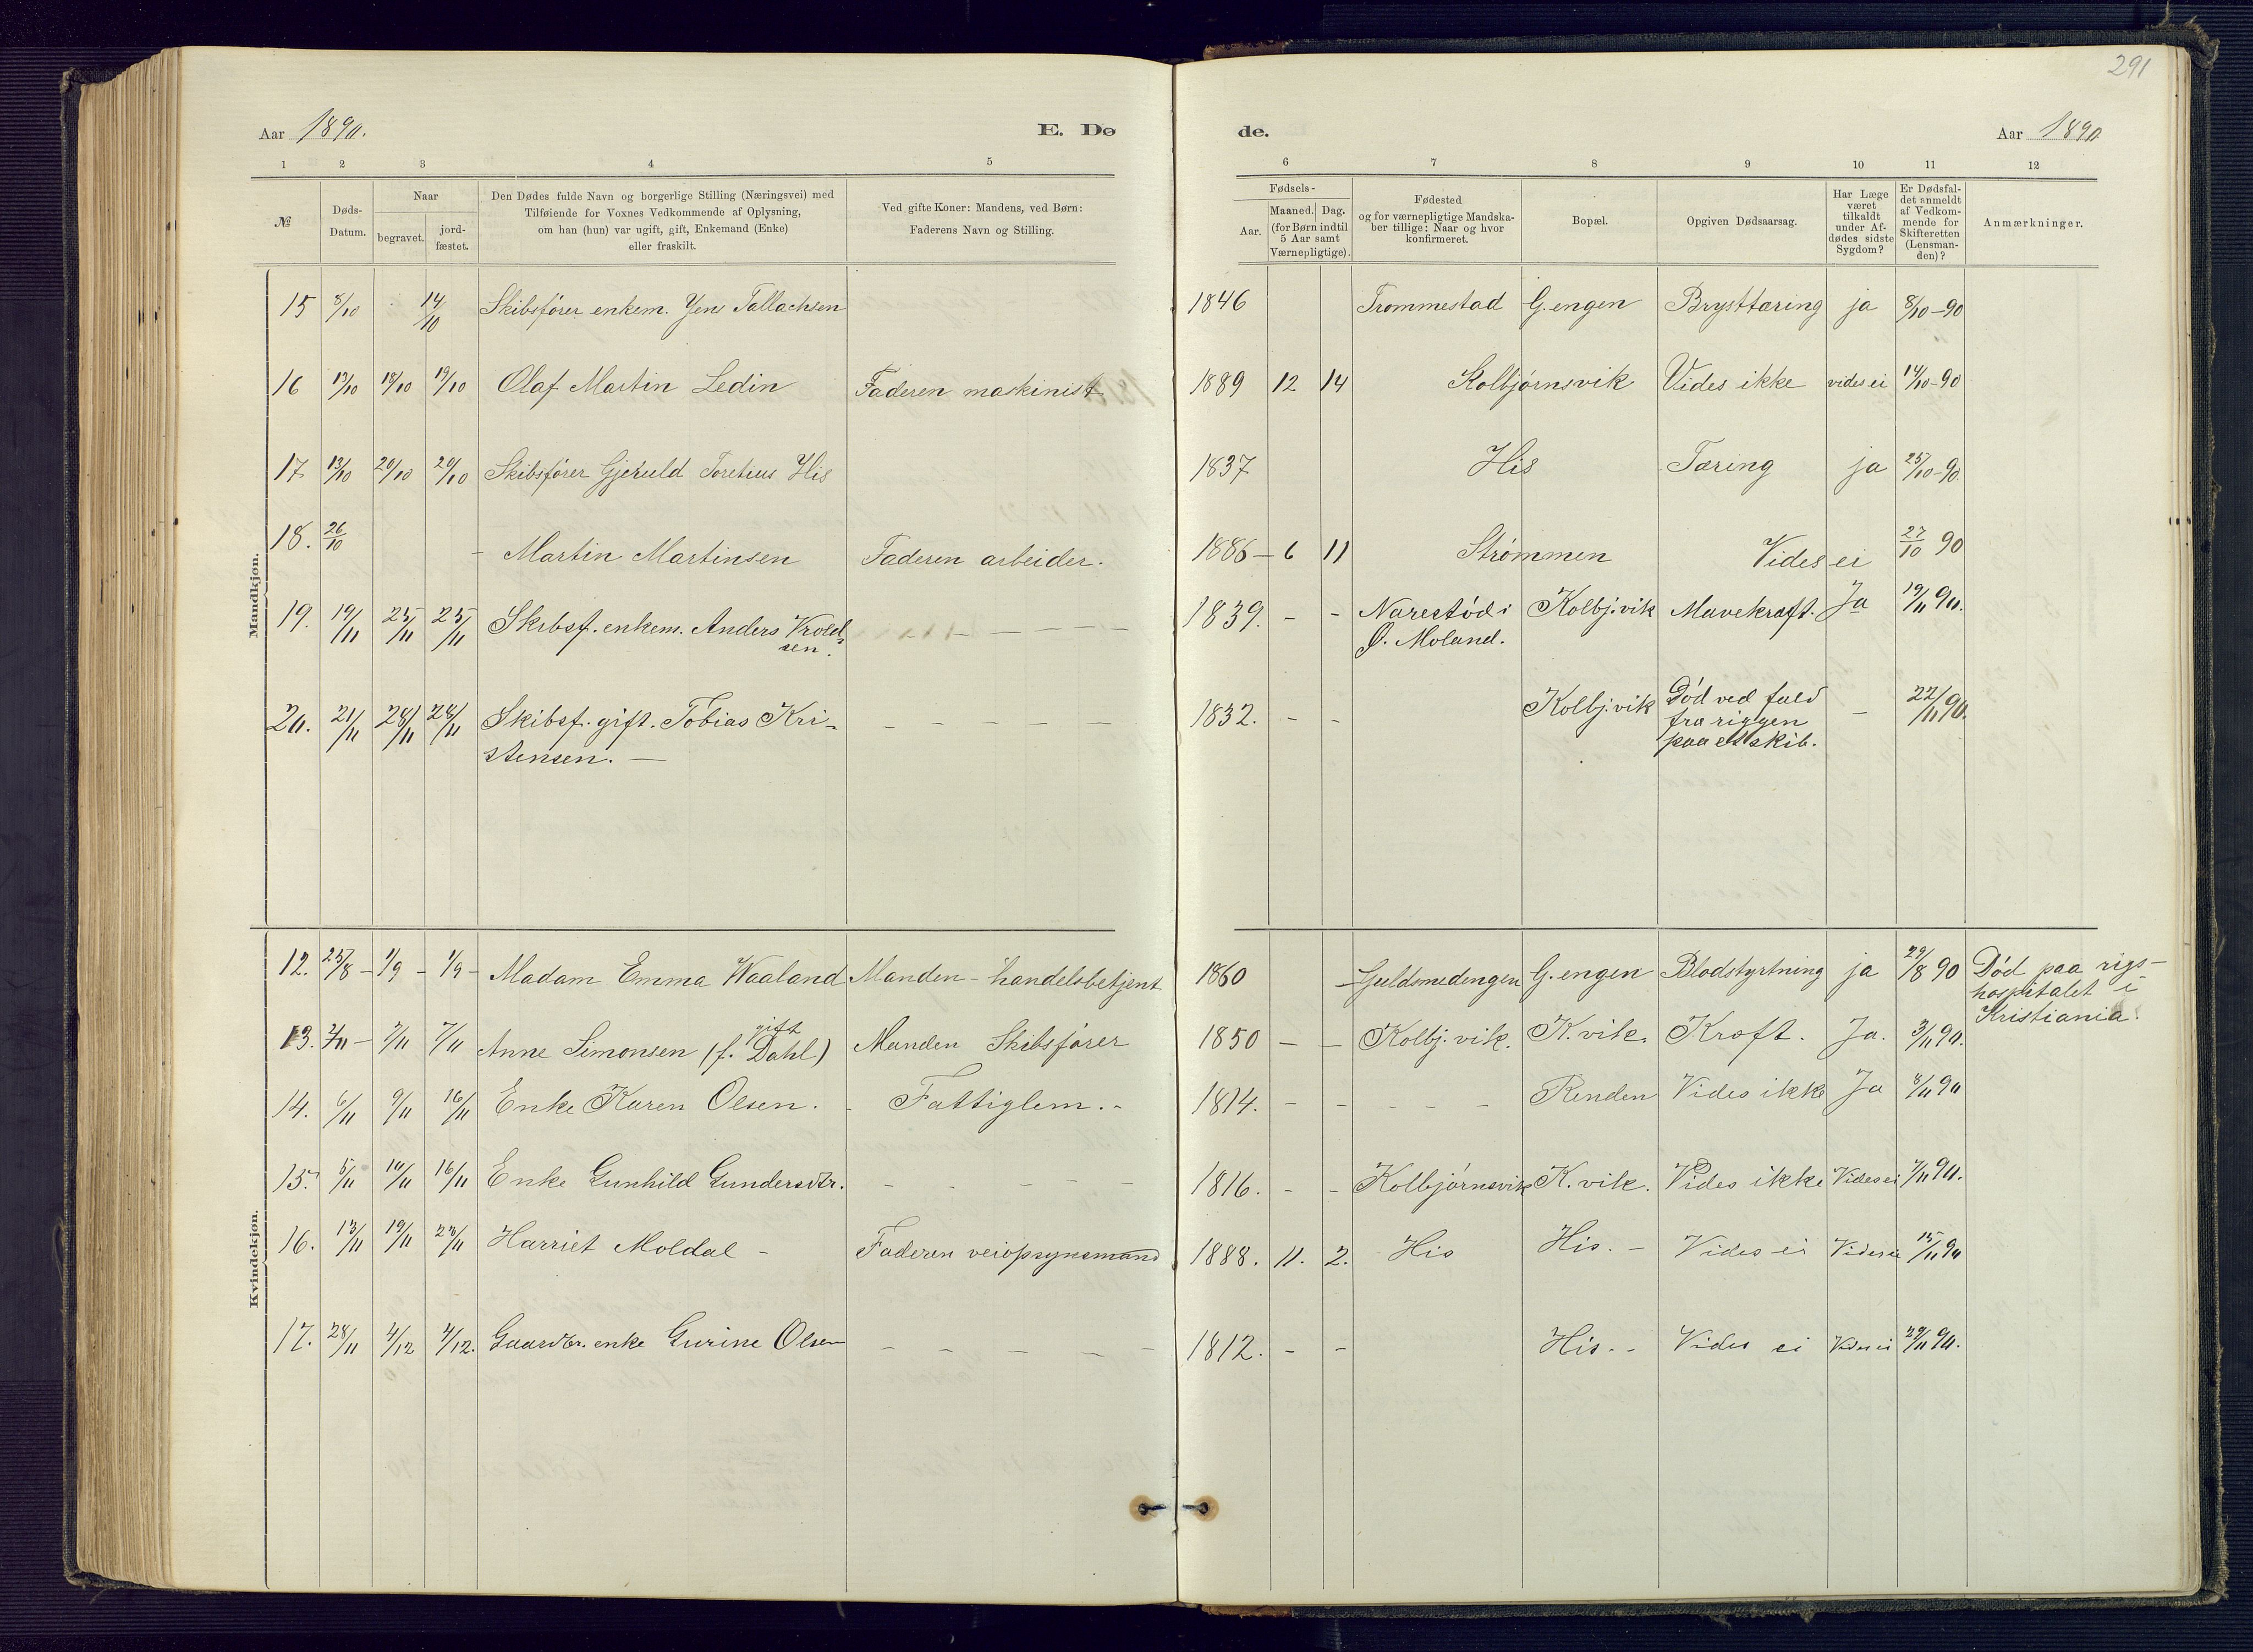 291
Aar 1890. E. Dø de. Aar 1890
1 2 3 4 5 6 7 8 9 10 11 12
№
Døds-Datum.
Naar
begravet.
jord-fæstet.
Den Dødes fulde Navn og borgerlige Stilling (Næringsvei) med
Tilføiende for Voxnes Vedkommende af Oplysning,
om han (hun) var ugift, gift, Enkemand (Enke)
eller fraskilt.
Ved gifte Koner: Mandens, ved Børn:
Faderens Navn og Stilling.
Fødsels-
Aar.
Maaned. Dag.
(for Børn indtil
5 Aar samt
Værnepligtige).
Fødested
og for værnepligtige Mandska-
ber tillige: Naar og hvor
konfirmeret.
Bopæl.
Opgiven Dødsaarsag.
Har Læge
været
tilkaldt
under Af-
dødes sidste
Sygdom?
Er Dødsfal-
det anmeldt
af Vedkom-
mende for
Skifteretten
(Lensman-
den)?
Anmærkninger.
Mandkjøn.
15 8/10 14/10 Skibsfører enkem. Jens Tallachsen 1846 Trommestad G.engen Brysttæring ja 8/10-90
16 13/10 18/10 19/10 Olaf Martin Ledin Faderen maskinist 1889 12 14 Kolbjørnsvik Vides ikke vides ei 14/10-90
17 13/10 20/10 20/10 Skibsfører Gjeruld Toretius His 1837 His Tæring ja 25/10-90.
18. 26/10 - Martin Martinsen Faderen arbeider. 1886 - 6 11 Strømmen Vides ei 27/10 90
19. 19/11 25/11 25/11 Skibsf. enkem. Anders Vrolds- - - - - 1839. - - Narestød i Kolbj.vik Mavekræft. Ja 19/11 90.
sen. Ø. Moland.
20. 21/11 28/11 28/11 Skibsf. gift. Tobias Kri- - - - - - 1832. - - Kolbj.vik Død ved fald - 22/11 90.
stensen. - fra riggen
paa et skib.
Kvindekjøn.
12. 25/8 - 1/9 - 1/9 - Madam Emma Waaland Manden - handelsbetjent 1860 - Guldsmedengen G.engen Blodstyrtning ja 29/8 90 Død paa rigs-
hospitalet i
Kristiania.
gift
13. 2/11 - 7/11 7/11 Anne Simonsen (f. Dahl) Manden Skibsfører 1850 - - Kolbj.vik. K.vik. Kræft. Ja. 3/11 90.
14. 6/11 9/11 16/11 Enke Karen Olsen. - Fattiglem. - 1814. - - - - - Renden Vides ikke Ja 8/11 90
15. 5/11 10/11 16/11 Enke Gunhild Gundersdtr. - - - - - 1816. - - Kolbjørnsvik K.vik. Vides ikke Vides ei 7/11 90.
16. 13/11 19/11 23/11 Harriet Moldal - Faderen veiopsynsmand 1888. 11. 2. His His. - Vides ei Vides ei 15/11 90
17. 28/11 4/12 4/12. Gaardbr. enke Gurine Olsen - - - - - 1812. - - His. - Vides ei Vides ei 29/11 90.